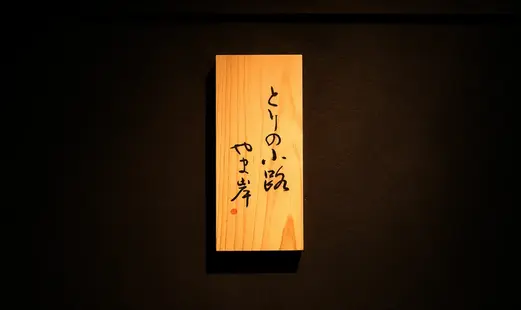 とりの小路
やま岸